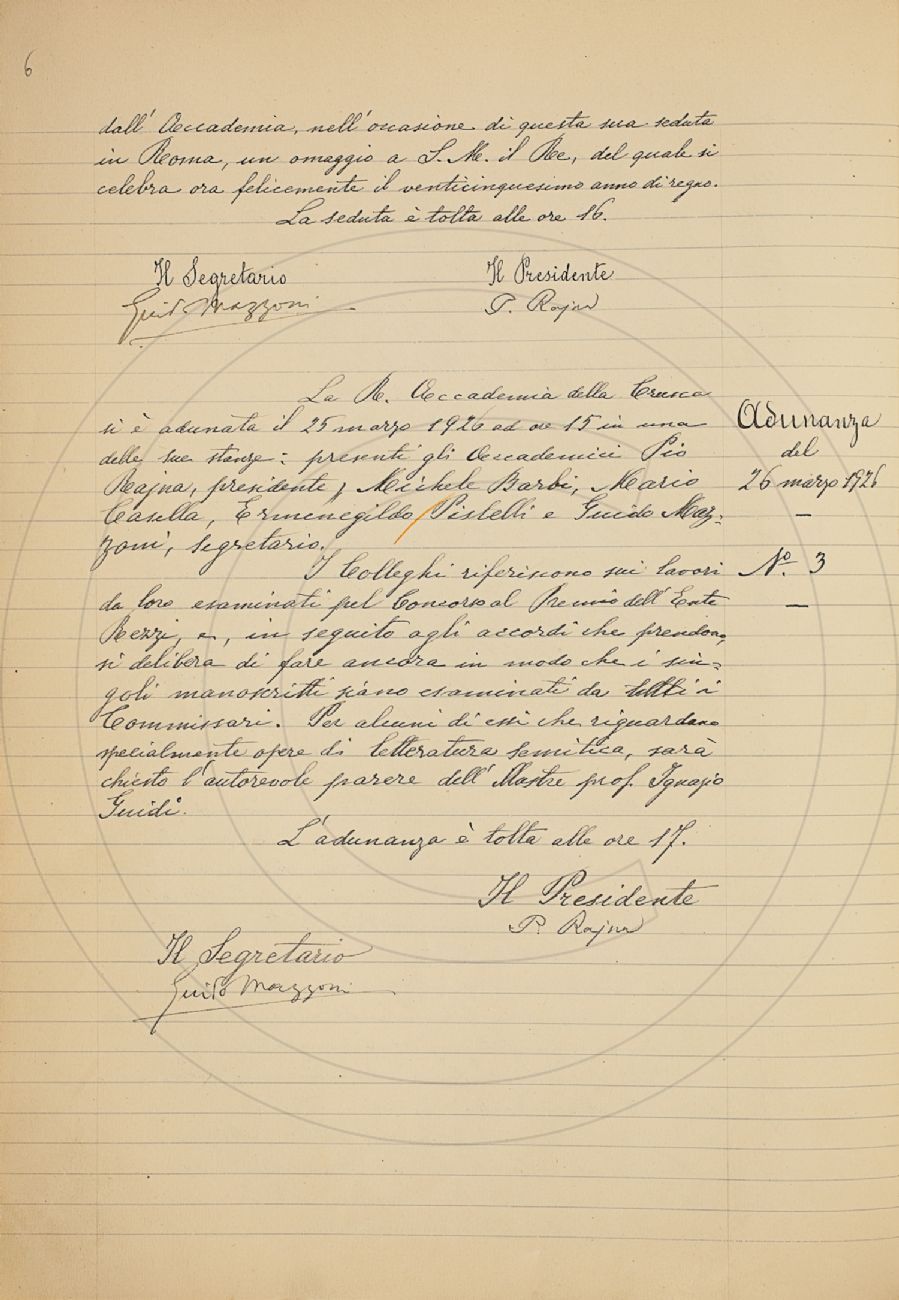 6
dall' Accademia, nell'occasione di questa sua seduta
in Roma, un omaggio a S. M. il Re, del quale si
celebra ora felicemente il venticinquesimo anno di regno.
La seduta è tolta alle ore 16.
Il Segretario
Guido Mazzoni
Il Presidente
P. Rajna
La R. Accademia della Crusca
si è adunata il 25 marzo 1926 ad ore 15 in una
delle sue stanze: presenti gli Accademici Pio
Rajna, presidente, Michele Barbi, Mario
Casella, Ermenegildo Pistelli e Guido Maz=
zoni, segretario.
Adunanza
del
26 marzo 1926
—
Nº. 3
—
I Colleghi riferiscono sui lavori
da loro esaminati pel Concorso al Premio dell'Ente
Rezzi, e, in seguito agli accordi che prendono,
si delibera di fare ancora in modo che i sin=
goli manoscritti siano esaminati da tutti i
Commissari. Per alcuni di essi che riguardano
specialmente opere di letteratura semitica, sarà
chiesto l'autorevole parere dell' prof. Ignazio
Guidi.
L'adunanza è tolta alle ore 17.
Il Presidente
P. Rajna
Il Segretario
Guido Mazzoni